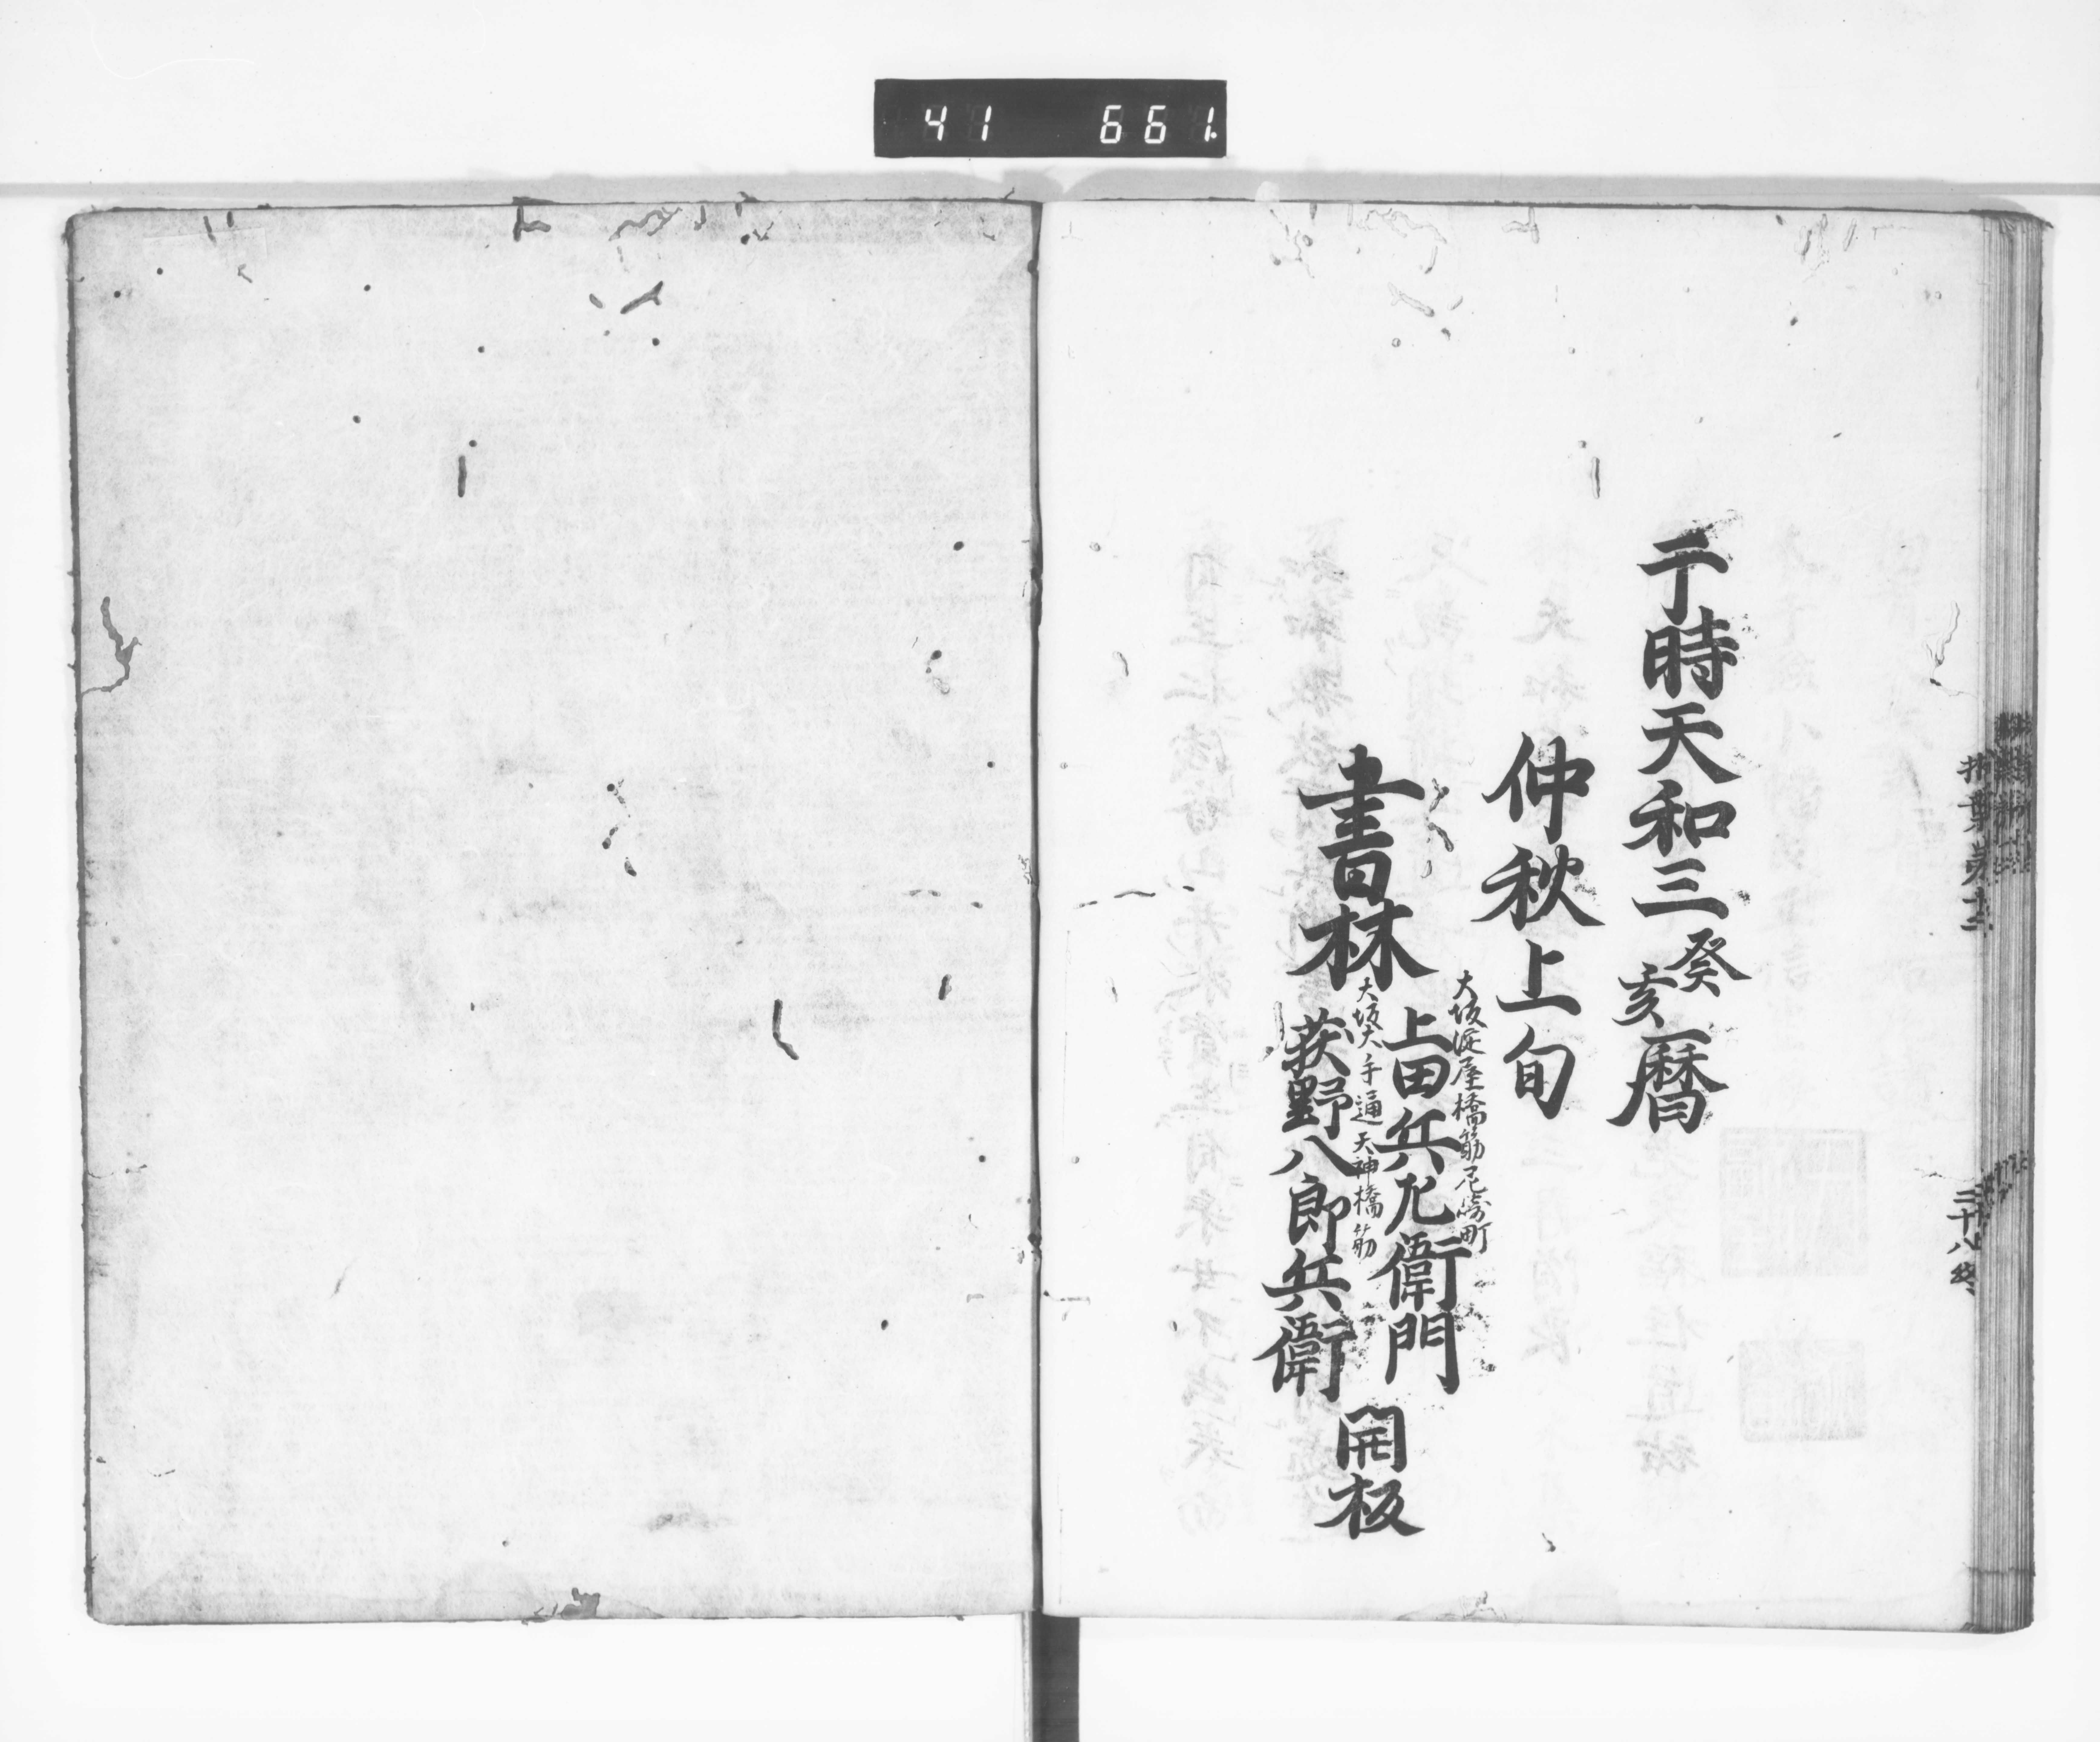 41 661
于時天和三癸亥暦
仲秋上旬
大坂淀屋橋筋尼崎町
上田兵左衛門
書林
大坂大手通天神橋筋
荻野八郎兵衛
開板
二十八終